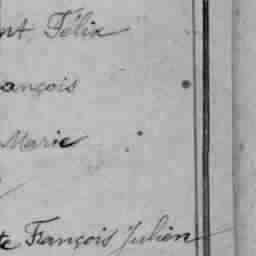 nt Félix
ançois
Marie
te François Julien